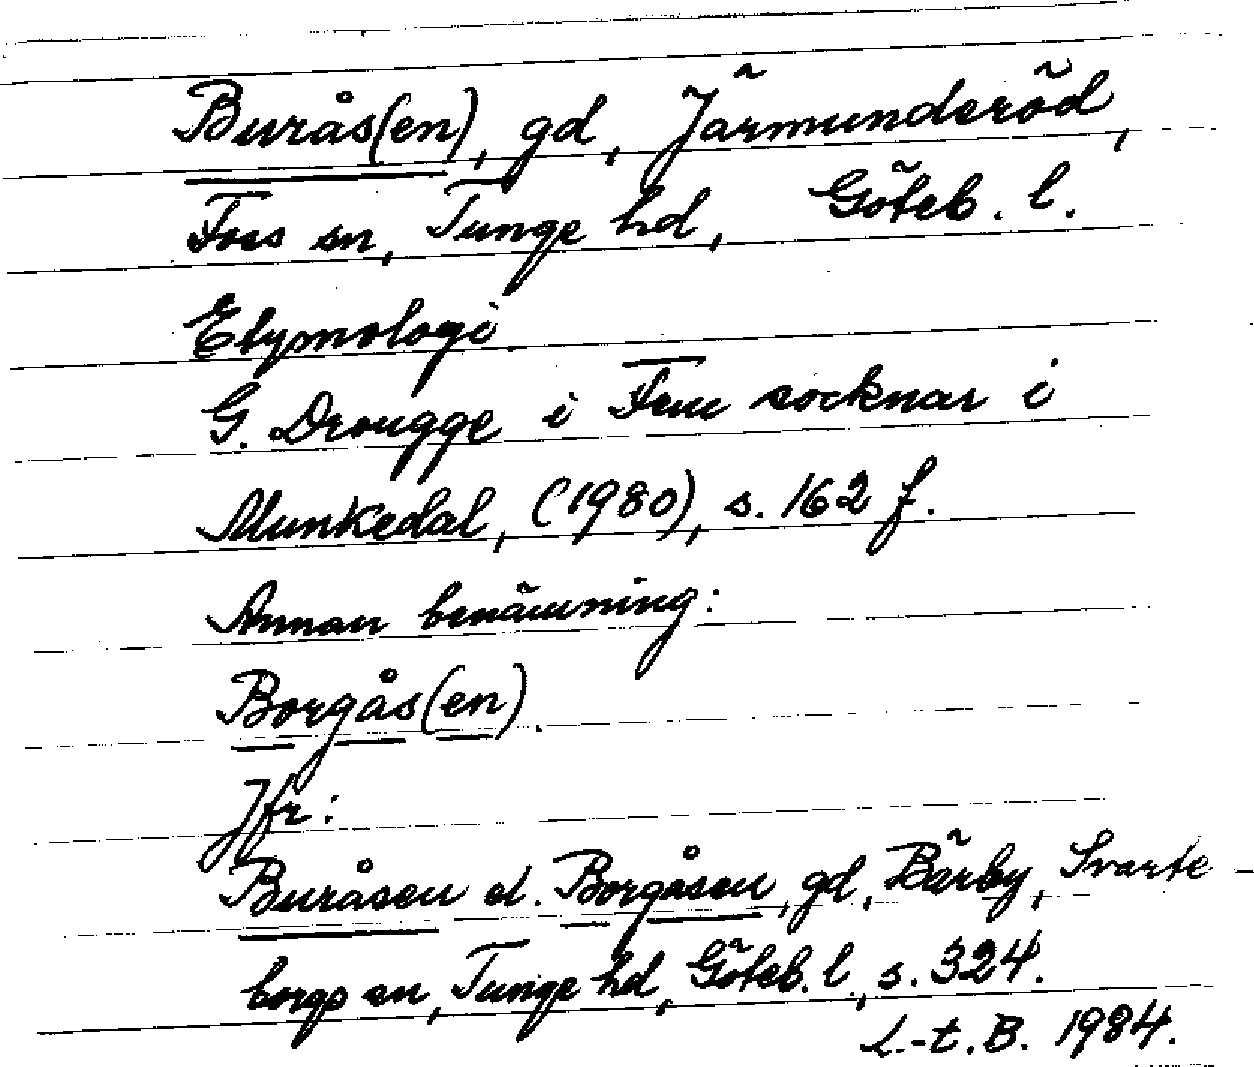 Burås(en), gd, Järmunderöd,
Foss sn, Tunge hd, Göteb. l.
Etymologi
G. Drougge i Fem socknar i
Munkedal, (1980), s. 162 f.
Annan benämning:
Borgås(en).
Jfr:
Buråsen el. Borgåsen, gd, Bärby, Svarte-
borgs sn, Tunge hd, Göteb. l., s. 324.
L.-t. B. 1984.